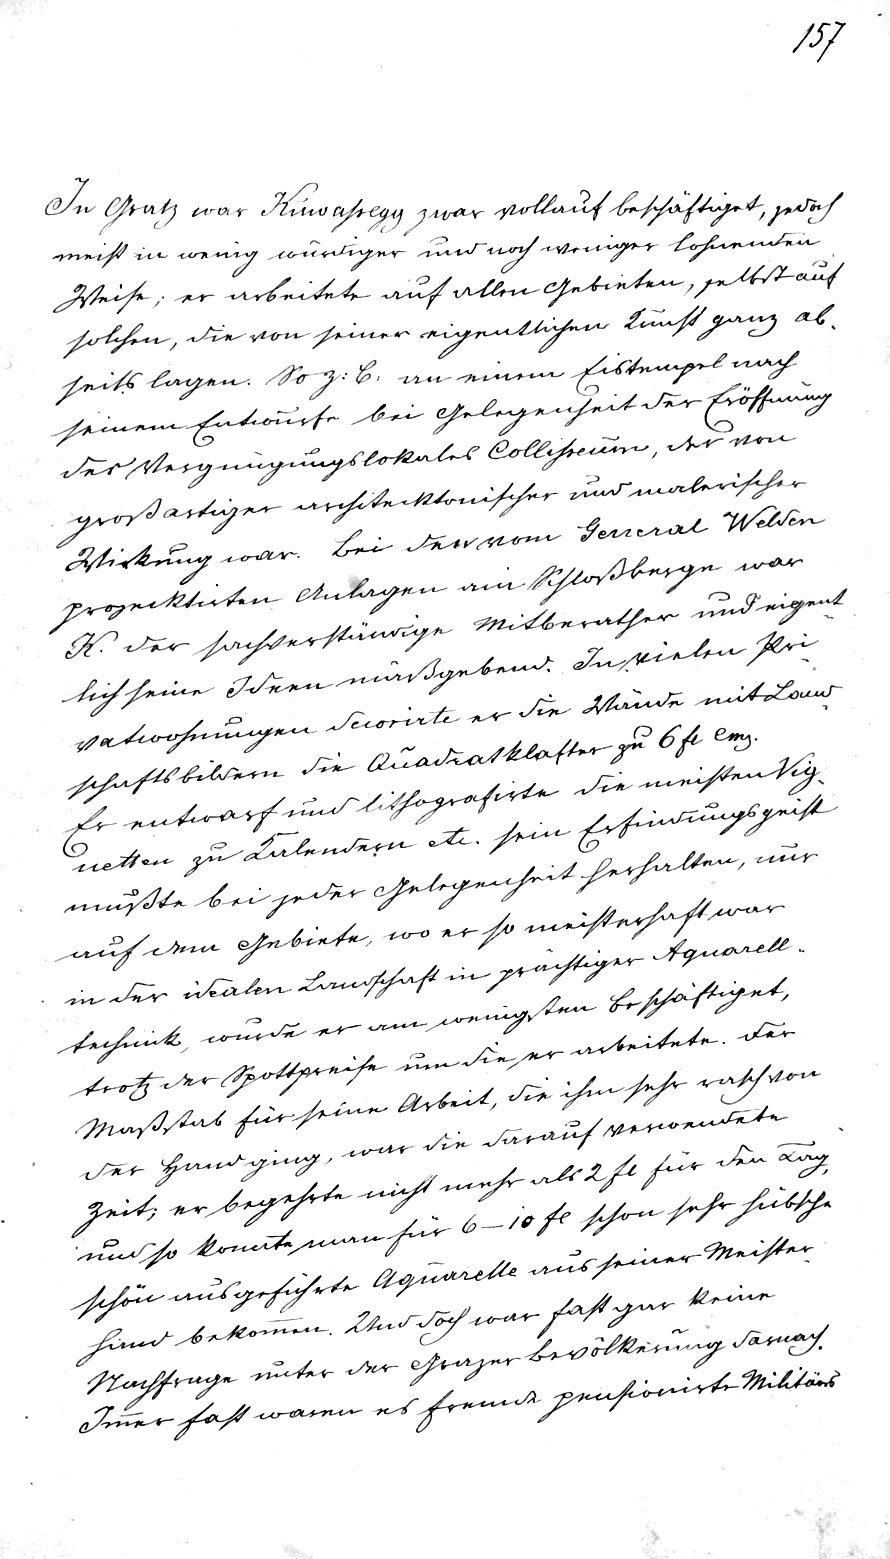 157
In Gratz war Kuwasegg zwar vollauf beschäftiget, jedoch
meist in wenig würdiger und noch weniger lohnenden
Weise; er arbeitete auf allen Gebieten, selbst auf
solchen, die von seiner eigentlichen Kunst ganz ab-
seits lagen. So z: B: an einem Eistempel nach
seinem Entwurfe bei Gelegenheit der Eröffnung
des Vergnügungslokales Collisseum, der von
großartiger architecktonischer und malerischer
Wirkung war. Bei den vom General Welden
projecktirten Anlagen am Schloßberge war
K. der sachverständige Mitberather und eigent-
lich seine Ideen maßgebend. In vielen Pri-
vatwohnungen decorirte er die Wände mit Land-
schaftsbildern die Quadratklafter zu 6 fl Cmz.
Er entwarf und lithografirte die meisten Vig-
netten zu Kalendern etc. sein Erfindungsgeist
mußte bei jeder Gelegenheit herhalten, nur
auf dem Gebiete, wo er so meisterhaft war
in der idealen Landschaft in prächtiger Aquarell-
technick, wurde er am wenigsten beschäftiget,
trotz der Spottpreise um die er arbeitete. Der
Maßstab für seine Arbeit, die ihm sehr rasch von
der Hand ging, war die darauf verwendete
Zeit; er begehrte nicht mehr als 2 fl für den Tag,
und so konnte man für 6–10 fl schon sehr hübsche
schön ausgeführte Aquarelle aus seiner Meister-
hand bekom̄en. Und doch war fast gar keine
Nachfrage unter der Grazer Bevölkerung darnach.
Im̄er fast waren es fremde pensionirte Militärs